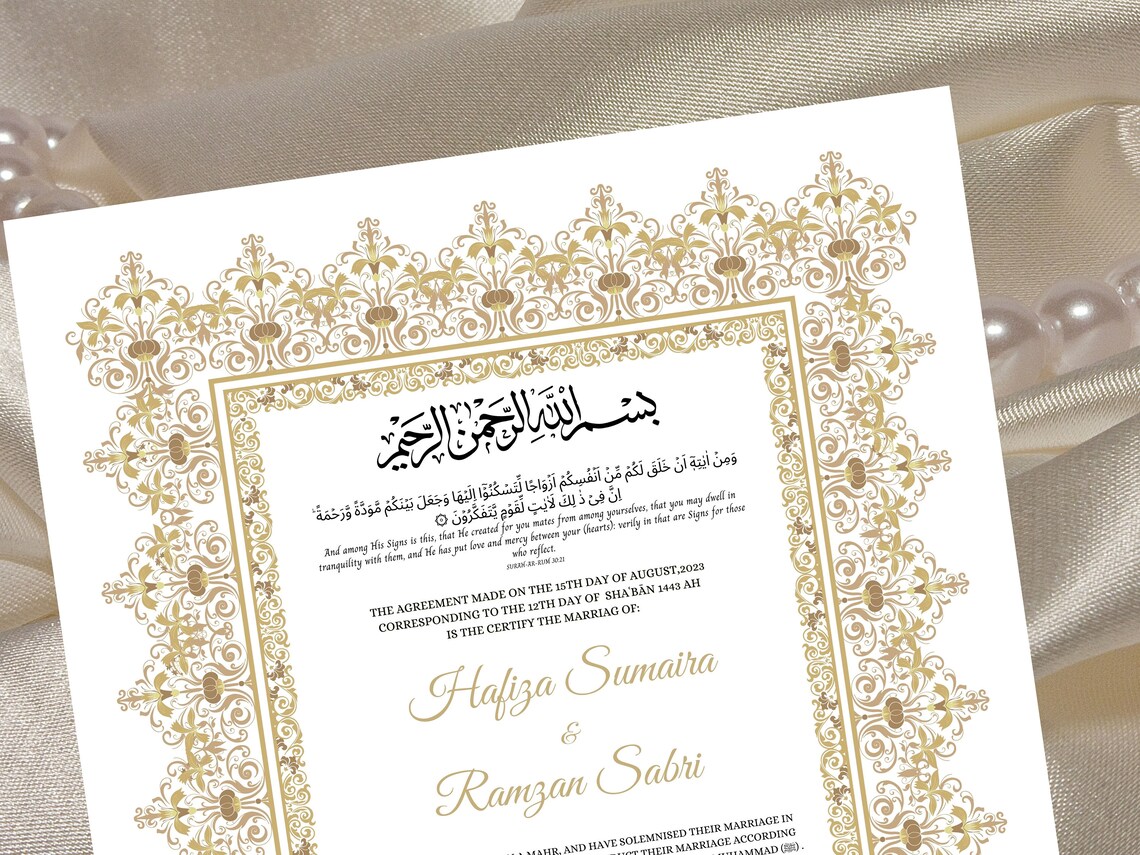 بِسْمِ اللَّهِ الرَّحْمٰنِ الرَّحِيْمِ
وَمِنْ اٰيٰتِهٖٓ اَنْ خَلَقَ لَكُمْ مِّنْ اَنْفُسِكُمْ اَزْوَاجًا لِّتَسْكُنُوْٓا اِلَيْهَا وَجَعَلَ بَيْنَكُمْ مَّوَدَّةً وَّرَحْمَةً ۗ
اِنَّ فِيْ ذٰ لِكَ لَاٰيٰتٍ لِّقَوْمٍ يَّتَفَكَّرُوْنَ ۞
And among His Signs is this, that He created for you mates from among yourselves, that you may dwell in
tranquility with them, and He has put love and mercy between your (hearts): verily in that are Signs for those
who reflect.
SURAH-AR-RUM 30:21
THE AGREEMENT MADE ON THE 15TH DAY OF AUGUST,2023
CORRESPONDING TO THE 12TH DAY OF SHA'BĀN 1443 AH
IS THE CERTIFY THE MARRIAG OF:
Hafiza Sumaira
&
Ramzan Sabri
A MAHR, AND HAVE SOLEMNISED THEIR MARRIAGE IN
THEIR MARRIAGE ACCORDING
MUHAMMAD (ﷺ) .